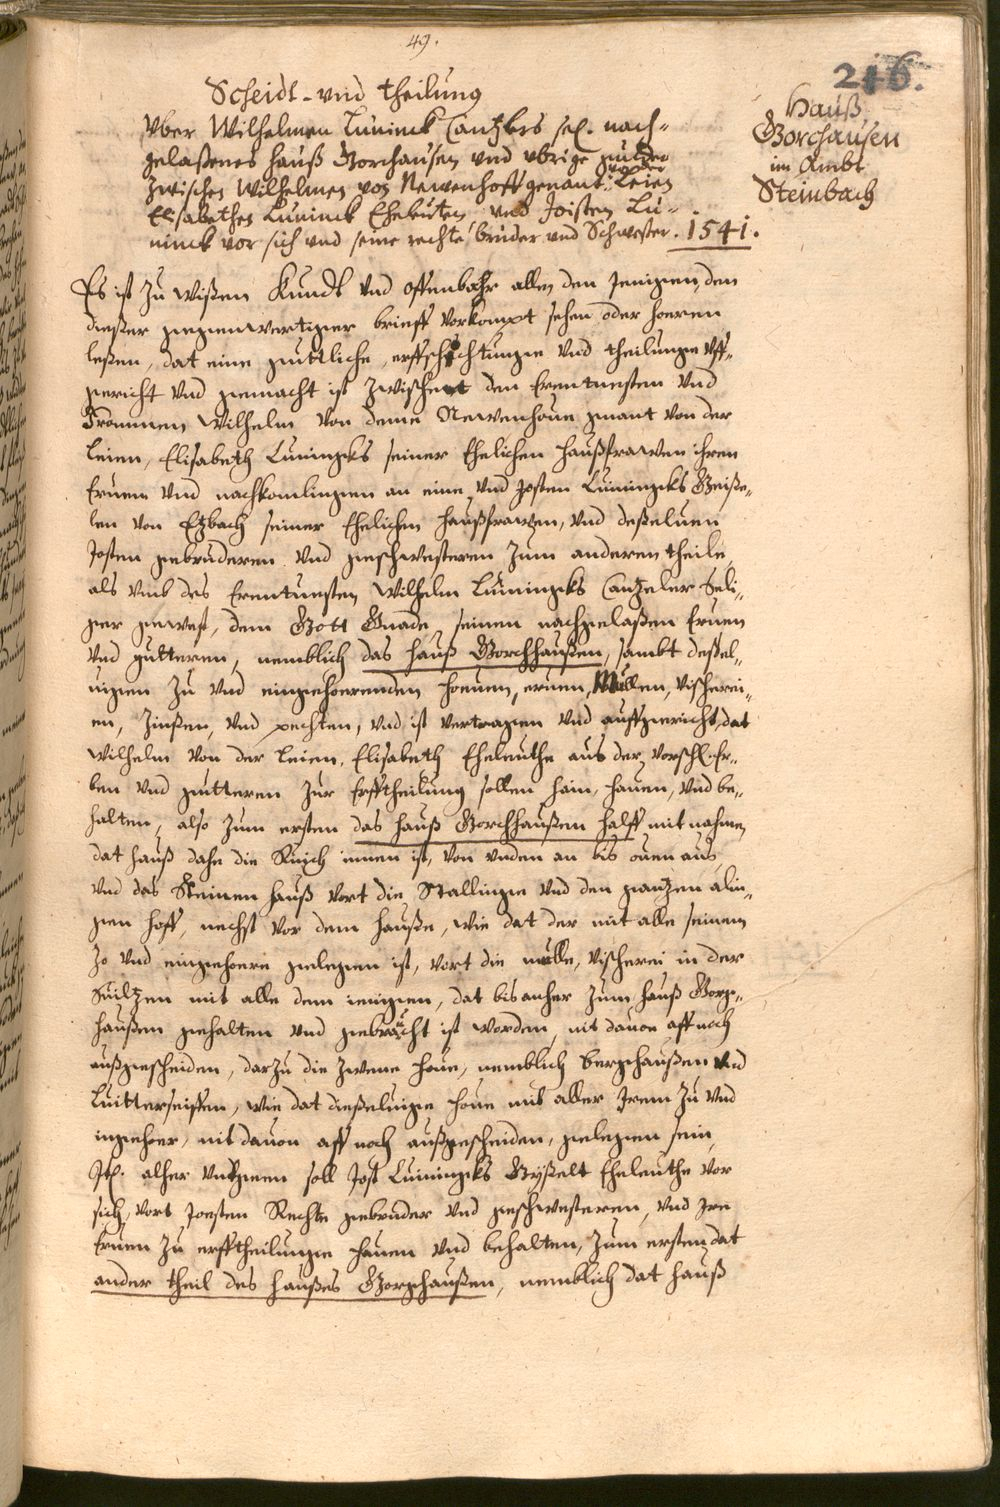 49.
246.
Scheidt- vnd theilung
vber Wilhelmen Luninck Cantzlers sel. nach-
gelaßenes hauß Gorchausen vnd vbrige gutter
zwischen Wilhelmen von Newenhoff genant von der Leien
Elisabethen Luninck Eheleuten vnd Joisten Lu-
ninck vor sich vnd seine rechte bruder vnd Schwester. 1541.
Hauß
Gorchausen
im Ambt
Steinbach
Es ist zu wißen Kundt vnd offenbahr allen den Jenigen, den
dießer gegenwertiger brieff vorkompt sehen oder hoeren
leßen, dat eine guttliche, erffschichtunge vnd theilunge vff-
gericht vnd gemacht ist zwischent den Erentuesten vnd
Frommen Wilhelm von deme Newenhoue gnant von der
Leien, Elisabeth Luningks seiner Ehelichen haußfrawen ihren
Eruen vnd nachkomlingen an eine, vnd Josten Luiningks Geiße-
len von Etzbach seiner Ehelichen haußfrawen, vnd deßeluen
Josten gebruderen vnd geschwesteren zum anderen theile,
als vmb des Erentuesten Wilhelm Luiningks Cantzeler Seli-
ger gewest, dem Gott Gnade, seinen nachgelaßen Eruen
vnd gutteren, nemblich das hauß Gorchhaußen, sambt deßel-
uigen zu vnd eingehoerenden hoeuen, eruen, Mullen, vischerei-
en, Zinßen, vnd pechten, vnd ist vertragen vnd auffgericht, dat
Wilhelm von der Leien, Elisabeth Eheleuthe aus der vorschl. Er-
ben vnd gutteren zur Erfftheilung sollen hain, hauen, vnd be-
halten, also zum ersten das hauß Gorchhaußen halff mit nahmen
dat hauß dahe die Kuich innen ist, von vnden an bis ouen aus,
vnd das Steinen hauß vort die Stallinge vnd den gantzen alin-
gen hoff, nechst vor dem hauße, wie dat der mit alle seinem
zo vnd eingehoere gelegen ist, vort die mulle, vischerei in der
Suiltzen mit alle dem ienigen, dat bis anher zum hauß Gorg-
haußen gehalten vnd gebraucht ist worden, nit dauon aff noch
außgescheiden, darzu die zwene houe, nemblich berghaußen vnd
Luitterseiffen, wie dat dießeluige houe mit aller Jrem zu vnd
ingehoer, nit dauon aff noch außgescheiden, gelegen sein,
Jtl. alher entgegen soll Jost Luiningks Gyßelt Eheleuthe vor
sich, vort Joesten Rechte gebruder vnd geschwesteren, vnd Jre
Eruen zu erfftheilunge hauen vnd behalten, zum ersten, dat
ander theil des haußes Gorghaußen, nemblich dat hauß